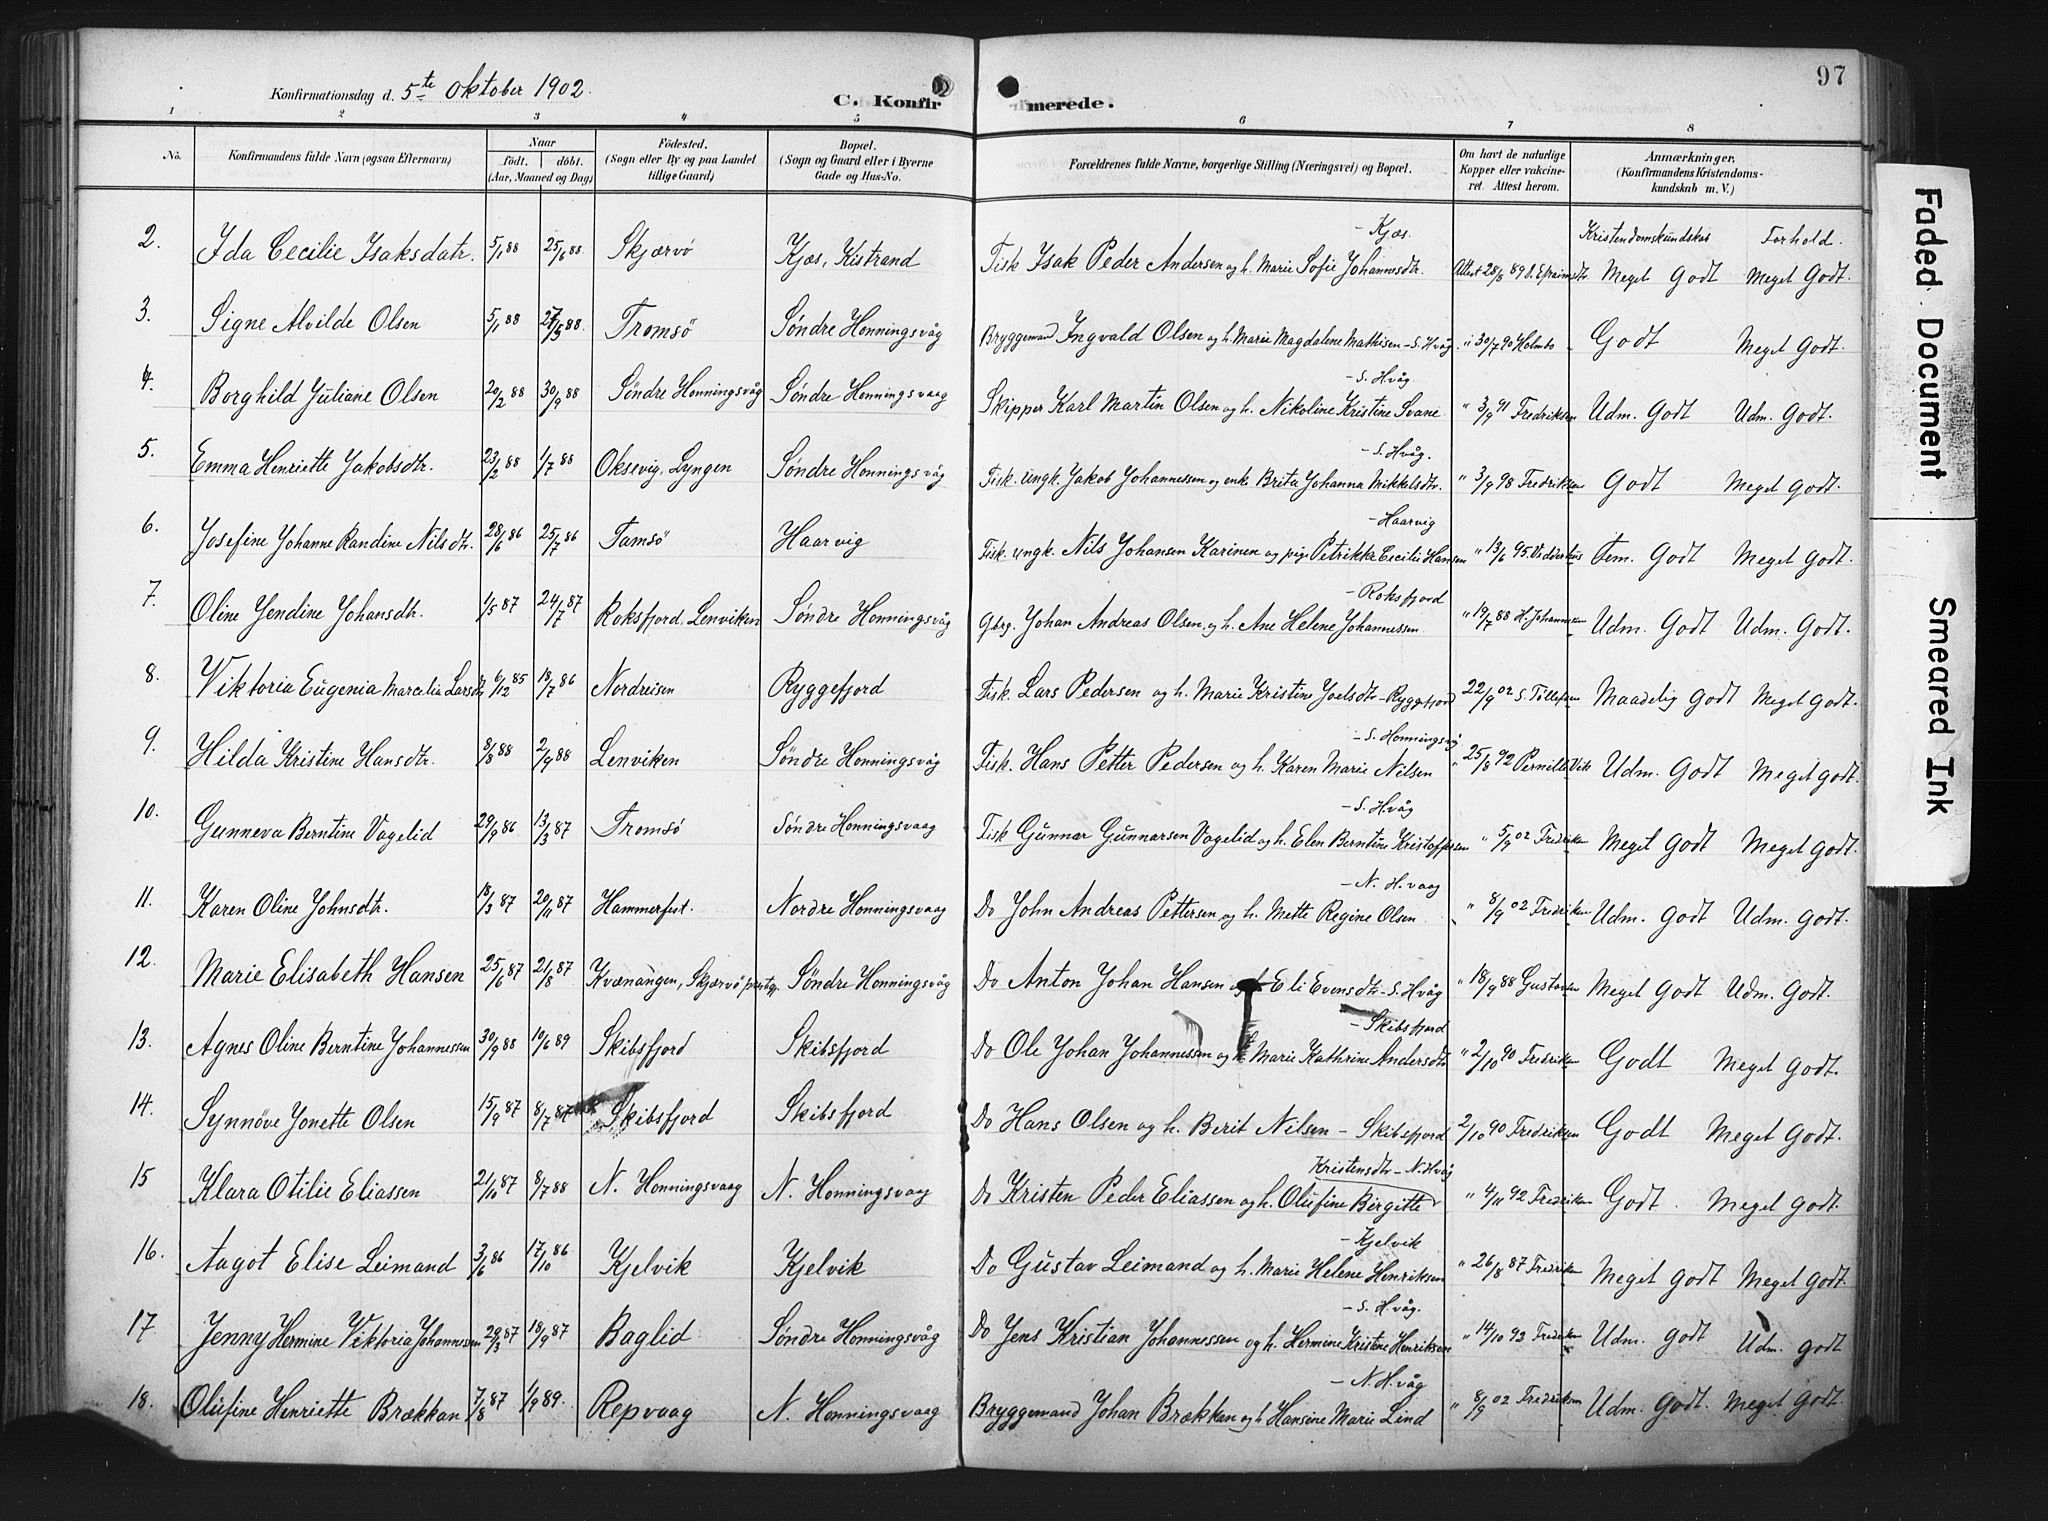 97
Konfirmationsdag d. 5te Oktober 1902.
C. Konfirmerede.
1 2 3 4 5 6 7 8
No. Konfirmandens fulde Navn (ogsaa Efternavn) Naar født. døbt. (Aar, Maaned og Dag) Fødested. (Sogn eller By og paa Landet tillige Gaard) Bopæl. (Sogn og Gaard eller i Byerne Gade og Hus-No. Forældrenes fulde Navne, borgerlige Stilling (Næringsvei) og Bopæl. Om havt de naturlige Kopper eller vakcineret. Attest herom. Anmærkninger, (Konfirmandens Kristendomskundskab m. V.)
Kristendomskundskab Forhold.
2. Ida Cecilie Isaksdatr. 5/1 88 25/6 88 Skjærvö Kjæs, Kistrand Fisk Isak Peder Andersen og h. Marie Sofie Johannesdtr. - Kjæs. Attest 28/8 89 Meget Godt Meget Godt.
3. Signe Alvilde Olsen 5/1 88 Tromsö Søndre Honningsvåg Bryggemand Ingvald Olsen og h. Marie Magdalene Mathisen - S. Hvåg " 30/7 90 Holmbo Godt Meget Godt.
4. Borghild Juliane Olsen 20/2 88 30/9 88 Søndre Honningsvåg Søndre Honningsvaag Skipper Karl Martin Olsen og h. Nikoline Kristine Svane - S. H.våg. " 3/9 91 Fredriksen Udm. Godt Udm. Godt.
5. Emma Henriette Jakobsdtr. 23/2 88 1/7 88 Oksevig, Lyngen Søndre Honningsvåg Fisk. ungk. Jakob Johannessen og enke Brita Johanna Mikkelsdtr. - S. Hvåg. " 3/9 98 Fredriksen Godt Meget Godt.
6. Josefine Johanne Randine Nilsdtr. 28/6 86 25/7 86 Tamsö Haarvig Fisk. ungk. Nils Johansen Karinen og pig. Petrikke Cecilie Hansen - Haarvig " 13/6 95 Tem. Godt Meget Godt.
7. Oline Jendine Johansdtr. 1/5 87 24/7 87 Roksfjord, Lenviken Søndre Honningsvåg Gbrg. Johan Andreas Olsen, og h. Ane Helene Johannessen - Roksfjord " 19/7 88 H. Johannesen Udm. Godt Udm. Godt.
8. Viktoria Eugenia Marcelia Larsdtr 6/12 85 18/7 86 Nordreisen Ryggefjord Fisk. Lars Pedersen og h. Marie Kristine Joelsdtr - Ryggefjord 22/9 02 S. Tollefsen Maadelig Godt Meget Godt.
9. Hilda Kristine Hansdtr. 8/8 88 2/9 88 Lenviken Søndre Honningsvåg Fisk. Hans Petter Pedersen og h. Karen Marie Nilsen - S. Honningsvåg " 25/8 92 Pernille Vik Udm. Godt Meget godt.
10. Gunneva Berntine Vagelid 29/9 86 13/3 87 Tromsö Søndre Honningsvaag Fisk Gunnar Gunnarsen Vagelid og h. Elen Berntine Kristoffersen - S. H.våg " 5/9 02 Fredriksen Meget Godt Meget Godt.
11. Karen Oline Johnsdtr. 18/3 87 20/11 87 Hammerfest. Nordre Honningsvaag Do John Andreas Pettersen og h. Mette Regine Olsen - N. H.vaag " 8/9 02 Fredriksen Udm. Godt Udm. Godt.
12. Marie Elisabeth Hansen 25/6 87 21/8 87 Kvænangen, Skjærvö prestgj. Søndre Honningsvåg Do Anton Johan Hansen og Eli Evensdtr - S. Hvåg " 18/9 88 Gustavsen Meget Godt Udm. Godt.
13. Agnes Oline Berntine Johannessen 30/9 88 19/6 89 Skibsfjord Skibsfjord Do Ole Johan Johannessen og h. Marie Kathrine Andersdtr - Skibsfjord " 2/10 90 Fredriksen Godt Meget Godt.
14. Synnöve Jonette Olsen 15/9 87 8/7 87 Skibsfjord Skibsfjord Do Hans Olsen og h. Berit Nilsen - Skibsfjord 2/10 90 Fredriksen Godt Meget Godt.
15 Klara Otilie Eliassen 21/10 87 8/7 88 N. Honningsvaag N. Honningsvaag Do Kristen Peder Eliassen og h. Olufine Birgitte Kristensdtr - N. Hvåg " 4/11 92 Fredriksen Godt. Meget Godt.
16. Aagot Elise Leimand 3/6 86 17/10 86 Kjelvik Kjelvik Do Gustav Leimand og h. Marie Helene Henriksen - Kjelvik " 26/8 87 Fredriksen Meget Godt Meget Godt.
17. Jenny Hermine Viktoria Johannesen 29/3 87 18/9 87 Baglid Søndre Honningsvåg Do Jens Kristian Johannessen og h. Hermine Kristine Henriksen - S. H.våg. " 14/10 92 Fredriksen Udm. Godt Udm. godt
18. Olufine Henriette Brækkan 7/8 87 1/9 89. Repvaag N. Honningsvaag Bryggemand Johan Brækkan og h Hansine Marie Lind - N. H.våg " 8/9 02 Fredriksen Udm. Godt. Meget Godt.
Faded Document
Smeared Ink